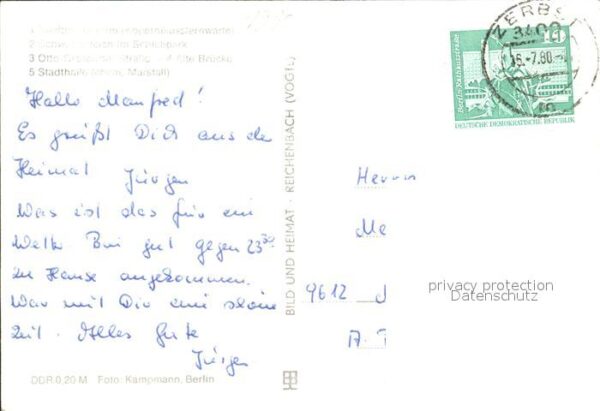 2 Schwanenteich im Schloßpark
5 Stadthalle (ehem. Marstall)
Hallo Manfred!
Es grüßt Dich aus der
Heimat Jürgen
Was ist das für ein
Wetter. Bin gut gegen 23³⁰
zu Hause angekommen.
War mit Dir eine schöne
Zeit. Alles Gute
Jürgen
DDR 0,20 M Foto: Kampmann, Berlin
BILD UND HEIMAT · REICHENBACH (VOGTL)
ZERBST
3400
16.-7.80
10
Berlin, Rathausstraße
DEUTSCHE DEMOKRATISCHE REPUBLIK
Herrn
Me
9612
privacy protection
Datenschutz